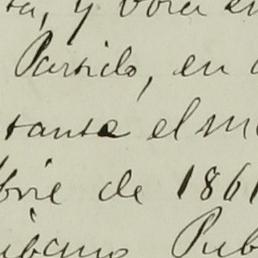 ta, y
Partido, en
tante el m
bre de 1861
ibano Pub